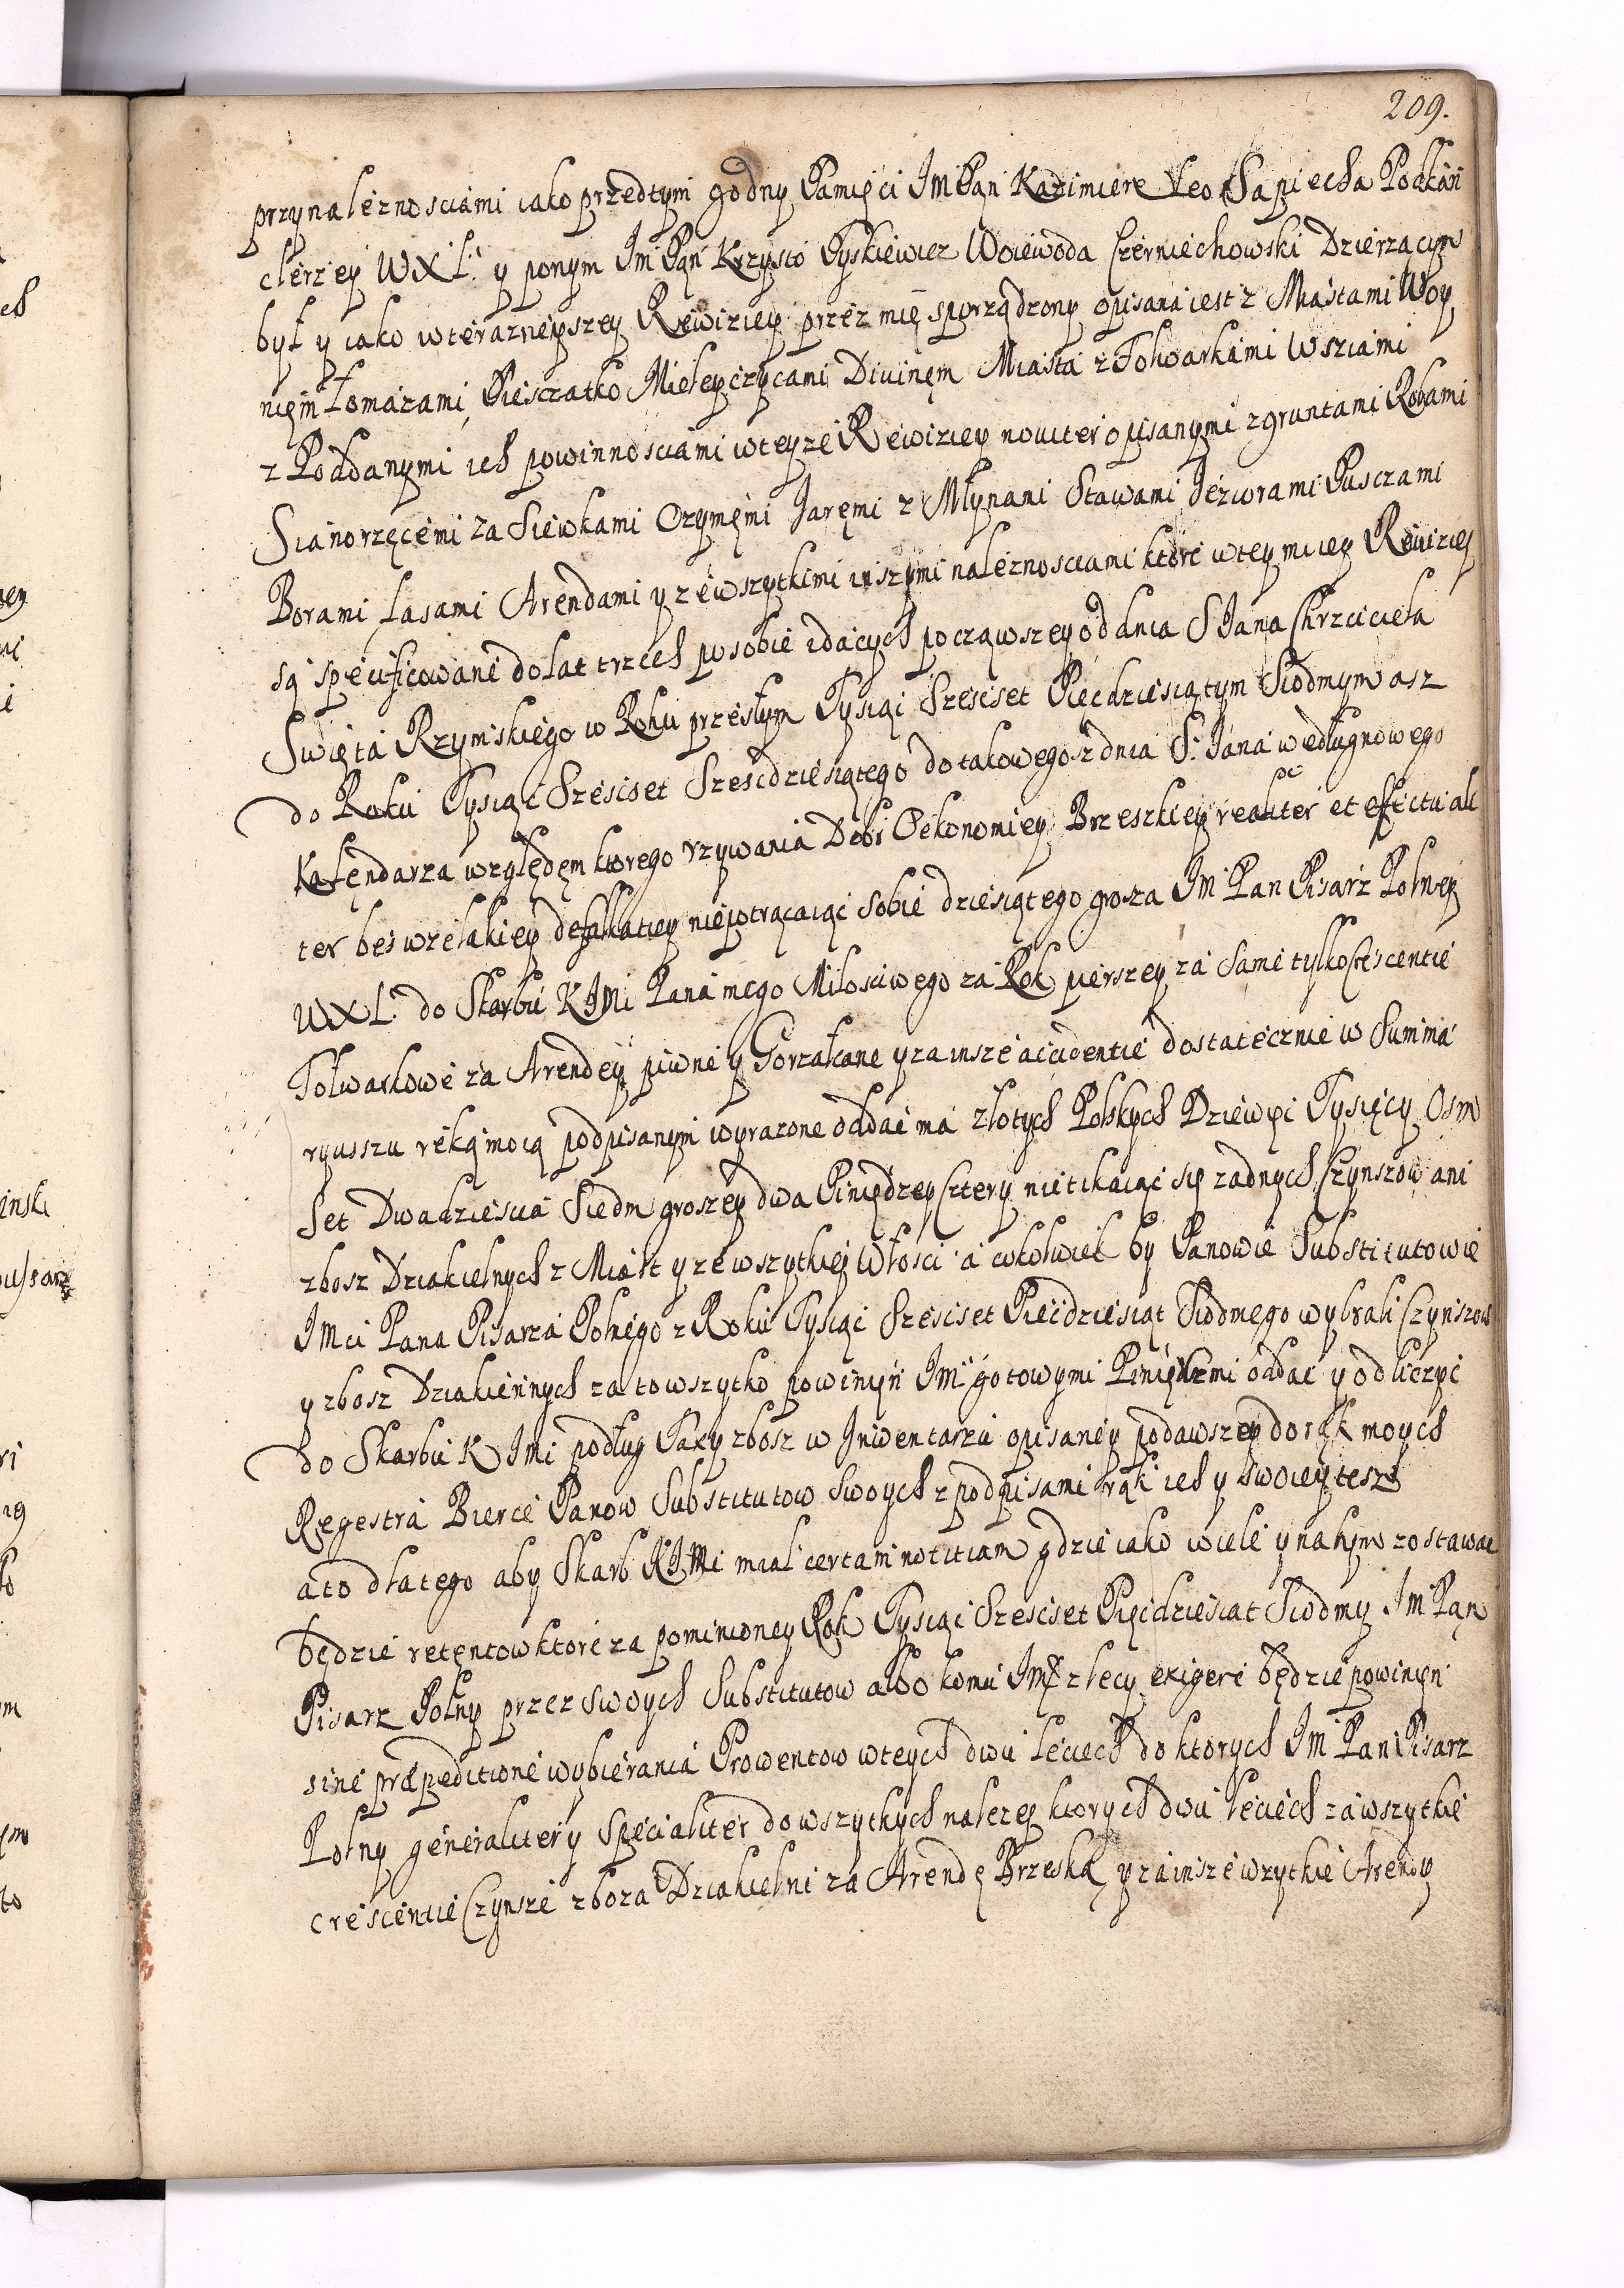 209.
przynaleznosciami iako przedtym godny Pamięci Im Pan Kazimierz Leo Sapiecha Podkan
clerzey WXL. y ponym Im Pan Krzysto Tyskiewicz Woiewoda Czerniechowski Dzierzącym
był y iako wterazneyszey Rewiziey przez mię sporządzony opisana iest z Miastami Woy
nięm Łomazami, Piesczatko Mieleyczycami Diuinęm Miasta z Folwarkami Wsziami
z Poddanymi ich powinnosciami wteyze Rewiziey nouiter opisanymi z gruntami Robami
Sianorzęcemi za Siewkami Ozymęmi Jaręmi z Młynami Stawami Jeziorami Pusczami
Borami Lasami Arendami y zewszytkimi inszymi naleznosciami ktore wtey mieg Rewiziey
są specificowane do lat trzech po sobie idących począwszey od dnia S Jana Chrzciciela
Swięta Rzymskiego w Roku przesłym Tysiąc Szescset Pięcdziesiątym Siodmym asz
do Roku Tysiąc Szescset Szescdziesiątego do takowegosz dnia S. Jana wedługnowego
Kalęndarza względęm ktorego vzywania Dobr Oekonomiey Brzeszkiey realiter et effectuali
ter bes wzelakiey defalkatiey niepotrącaiąc sobie dziesiątego grosza Im Pan Pisarz Polney
WXL. do Skarbu K JMi Pana mego Miłosciwego za Rok pierszey za same tylko Crescentie
Folwarkowe za Arendey piwne y Gorzałcane y za insze accidentie dostatecznie w Summa
ryuszu ręką moią podpisanym wyrazone oddac ma złotych Polskych Dziewięc Tysięcy Osm
set Dwadziescia Siedm groszey dwa Pinięddzey Cztery nietikaiąc się zadnych Czynszow ani
zbosz Dziakielnych z Miast y zewszytkiej Włosci a cokolwiek by Panowie Substitutowie
JMci Pana Pisarza Polnego z Roku Tysiąc Szescset Pięcdziesiąt Siodmego wybrali Czynszow
y zbosz Dziakielnych za to wszytko powinięn Im gotowymi Piniędzmi oddac y odliczyc
do Skarbu K JMi podług Taxy zbosz w Inwentarzu opisaney podawszey do rąk moych
Regestra Bierce Panow Substitutow swoych z podpisami rąk ich y swoiey tesz
a to dlatego aby Skarb KJMi miał certam notitiam gdzie iako wiele y nakym zostawac
będzie retentow ktore za pominioney Rok Tysiąc Szescset Pięcdziesiat Siodmy Im Pan
Pisarz Polny przez swoych Substitutow albo komu Im zlecy exigere będzie powinięn
sine præpeditione wybierania Prowentow wtych dwu leciech do ktorych Im Pan Pisarz
Polny generaliter y specialiter do wszytkych nalezey ktorych dwu leciech za wszytkie
crescentie Czynsze zboza Dziakielni za Arendę Brzeską y za insze wzytkie Arendy